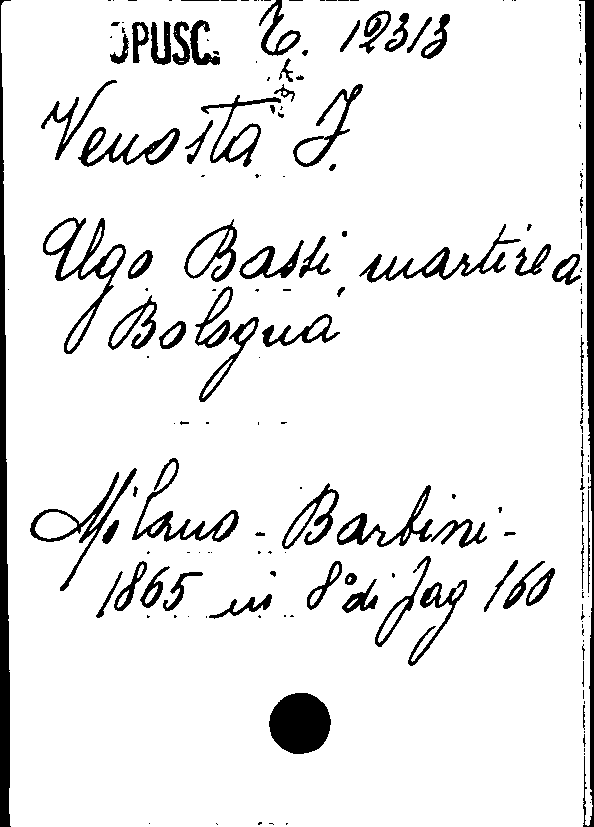 OPUSC. C. 12313
Venosta F.
Ugo Bassi, martire a
Bologna
Milano - Barbini -
1865 in 8° di pag 160